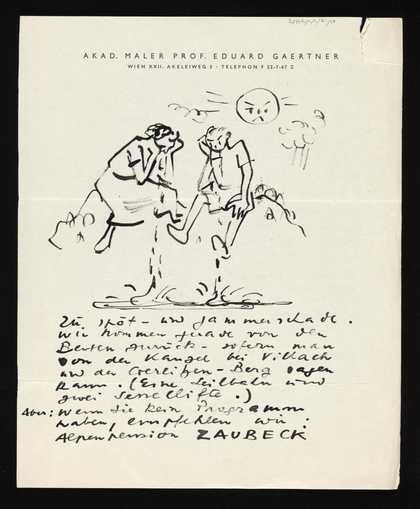 AKAD. MALER PROF. EDUARD GAERTNER
WIEN XXII. AKELEIWEG 5 · TELEPHON F 22-7-47 2
Zu spät – und jammerschade.
Wir kommen gerade von den
Bergen zurück – sofern man
von der Kanzel bei Villach
und der Gerlitzen-Berg sagen
kann. (Eine Seilbahn und
zwei Sessellifte.)
Aber: Wenn Sie kein Programm
haben, empfehlen wir:
Alpenpension ZAUBECK